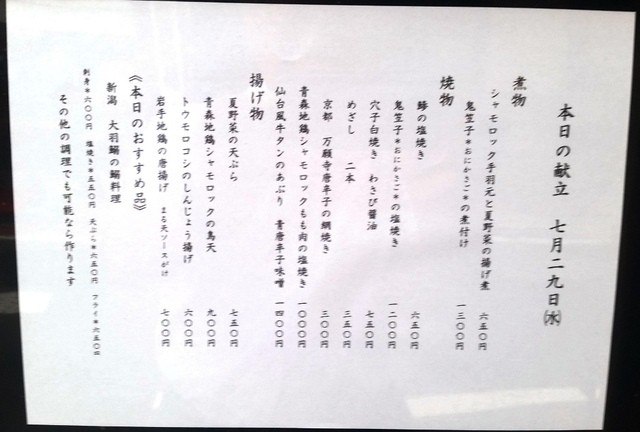 本日の献立　七月二九日㈬
煮物
シャモロック手羽元と夏野菜の揚げ煮　六五〇円
鬼笠子＊おにかさご＊の煮付け　一三〇〇円
焼物
鰺の塩焼き　六五〇円
鬼笠子＊おにかさご＊の塩焼き　一二〇〇円
穴子白焼き　わさび醤油　七五〇円
めざし　二本　三五〇円
京都　万願寺唐辛子の網焼き　三〇〇円
青森地鶏シャモロックもも肉の塩焼き　一〇〇〇円
仙台風牛タンのあぶり　青唐辛子味噌　一四〇〇円
揚げ物
夏野菜の天ぷら　七五〇円
青森地鶏シャモロックの鳥天　九〇〇円
トウモロコシのしんじょう揚げ　六〇〇円
岩手地鶏の唐揚げ　まる天ソースがけ　七〇〇円
《本日のおすすめ品》
新潟　大羽鰯の鰯料理
刺身＊六〇〇円　塩焼き＊五五〇円　天ぷら＊六五〇円　フライ＊六五〇円
その他の調理でも可能なら作ります